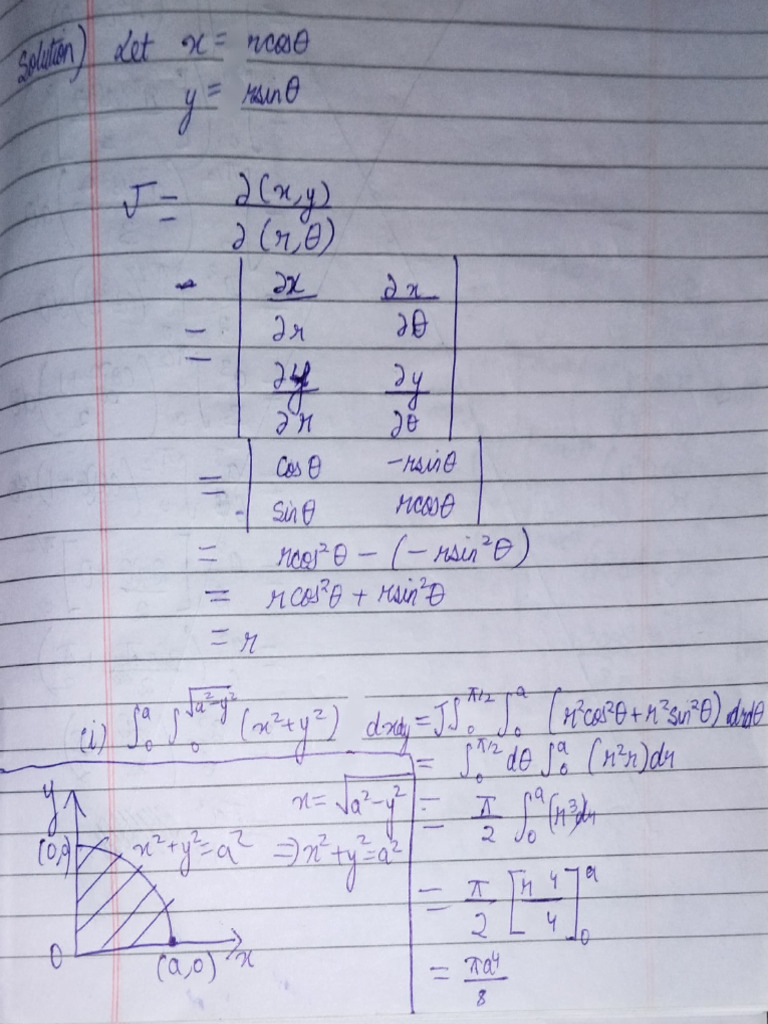 Solution) Let x = rcosθ
y = rsinθ
J = ∂(x,y)/∂(r,θ)
= | ∂x/∂r ∂x/∂θ |
| ∂y/∂r ∂y/∂θ |
= | cosθ -rsinθ |
| sinθ rcosθ |
= rcos²θ - (-rsin²θ)
= rcos²θ + rsin²θ
= r
(i) ∫₀^a ∫₀^√(a²-y²) (x²+y²) dxdy = J∫₀^π/2 ∫₀^a (r²cos²θ + r²sin²θ) drdθ
= ∫₀^π/2 dθ ∫₀^a (r²r)dr
= π/2 ∫₀^a (r³)dr
= π/2 [r⁴/4]₀^a
= πa⁴/8
x = √(a²-y²)
x²+y²=a² ⇒ x²+y²=a²
y
(0,a)
0
(a,0)
x